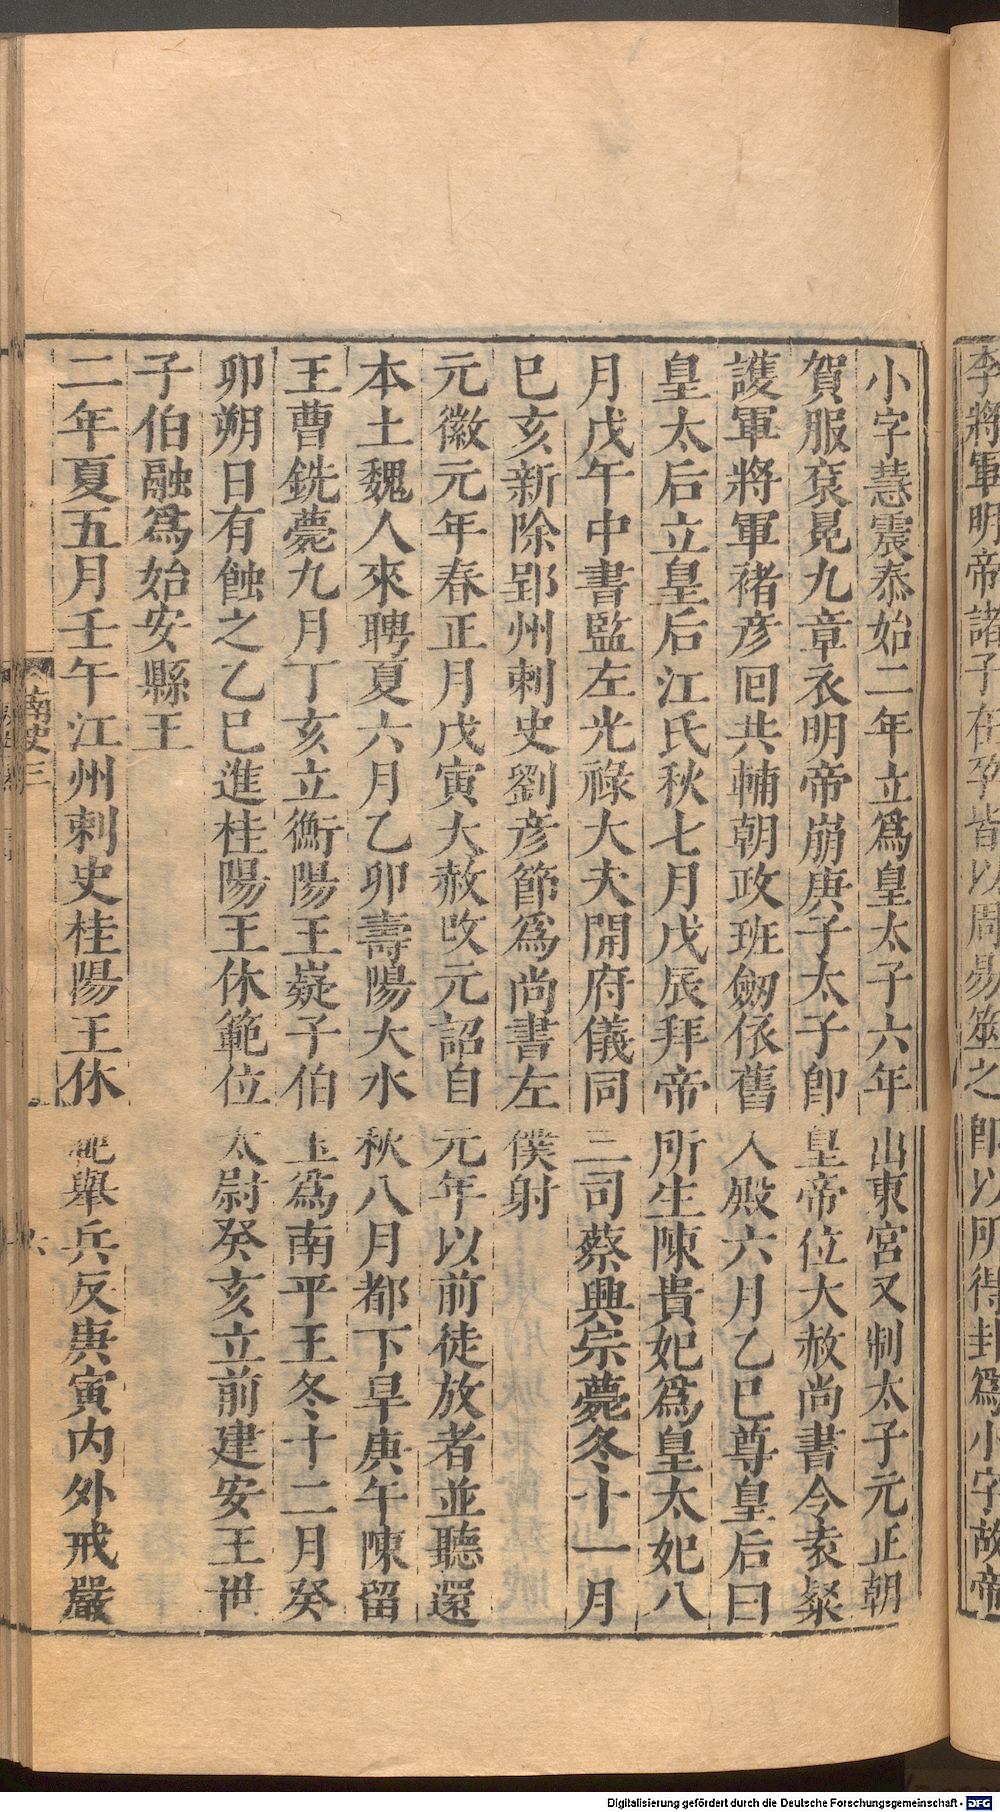 李將軍明帝諸子在孕皆以周易筮之即以所得卦爲小字故帝
小字慧震泰始二年立爲皇太子六年出東宮又制太子元正朝
賀服袞冕九章衣明帝崩庚子太子卽皇帝位大赦尚書令袁粲
護軍將軍褚彥回共輔朝政班劒依舊入殿六月乙巳尊皇后曰
皇太后立皇后江氏秋七月戊辰拜帝所生陳貴妃爲皇太妃八
月戊午中書監左光祿大夫開府儀同三司蔡興宗薨冬十一月
巳亥新除郢州刺史劉彥節爲尚書左僕射
元徽元年春正月戊寅大赦改元詔自元年以前徒放者並聽還
本土魏人來聘夏六月乙卯壽陽大水秋八月都下旱庚午陳留
王曹銑薨九月丁亥立衡陽王嶷子伯玉爲南平王冬十二月癸
卯朔日有蝕之乙巳進桂陽王休範位太尉癸亥立前建安王世
子伯融爲始安縣王
二年夏五月壬午江州刺史桂陽王休範舉兵反庚寅內外戒嚴
南史三
六
Digitalisierung gefördert durch die Deutsche Forschungsgemeinschaft - DFG